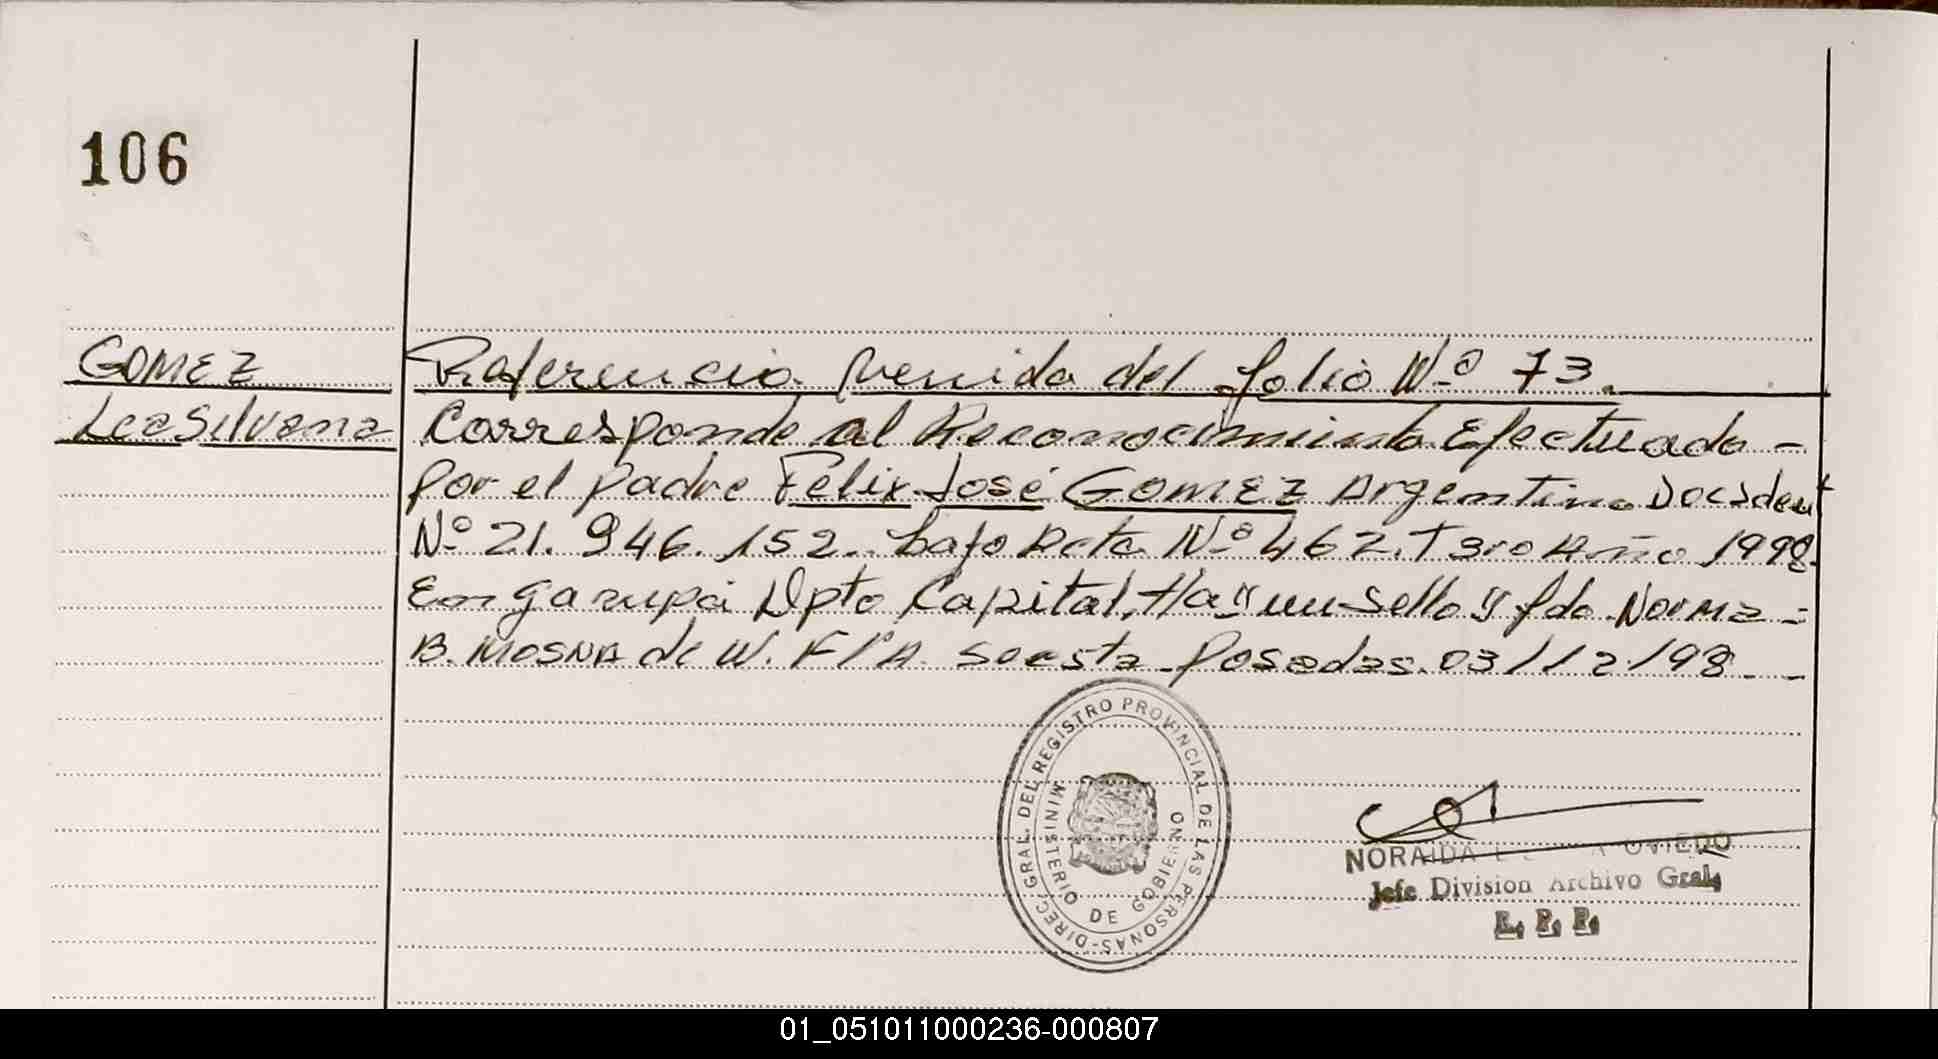 106
GOMEZ
Lea Silvana
Referencia Venida del folio Nº 73.
Corresponde al Reconocimiento Efectuado -
por el padre Felix José GOMEZ Argentino Doc Ident
Nº 21.946.152. bajo Acta Nº 462. T 3ro Año 1998.
En garupá Dpto Capital, Hay un Sello y fdo. Norma -
B. MOSNA de W. Posadas. 03/12/98 - -
DIREC. GRAL. DEL REGISTRO PROVINCIAL DE LAS PERSONAS-
MINISTERIO DE GOBIERNO
NORAIDA OVIEDO
Jefe Division Archivo Gral.
R. P. P.
01_051011000236-000807